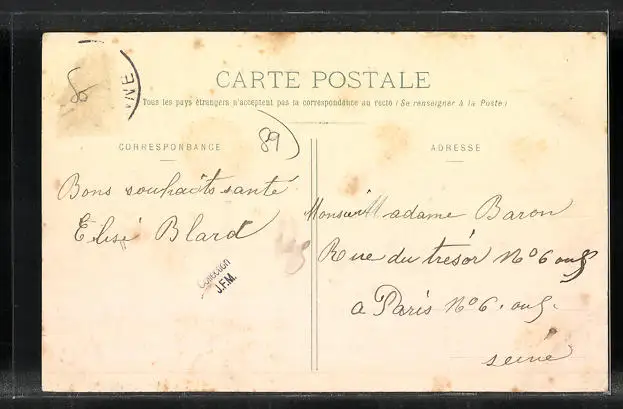 NNE
80
CARTE POSTALE
Tous les pays étrangers n'acceptent pas la correspondance au recto (Se renseigner à la Poste)
89
CORRESPONDANCE
Bons souhaits santé
Elise Blard
Collection
J.F.M.
ADRESSE
Monsieur Madame Baron
Rue du trésor No 6
a Paris No 6.
seine